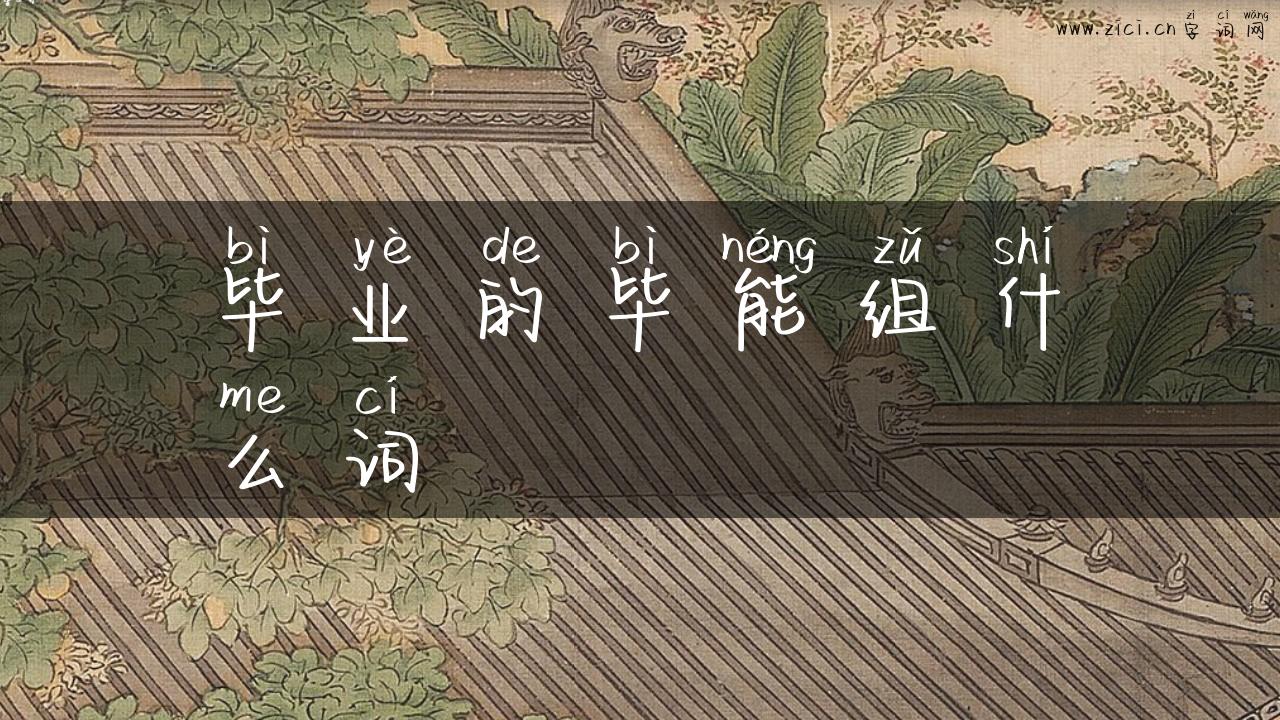 zì cí wǎng
www.zici.cn 字词网
bì yè de bì néng zǔ shí
毕业的毕能组什
me cí
么词